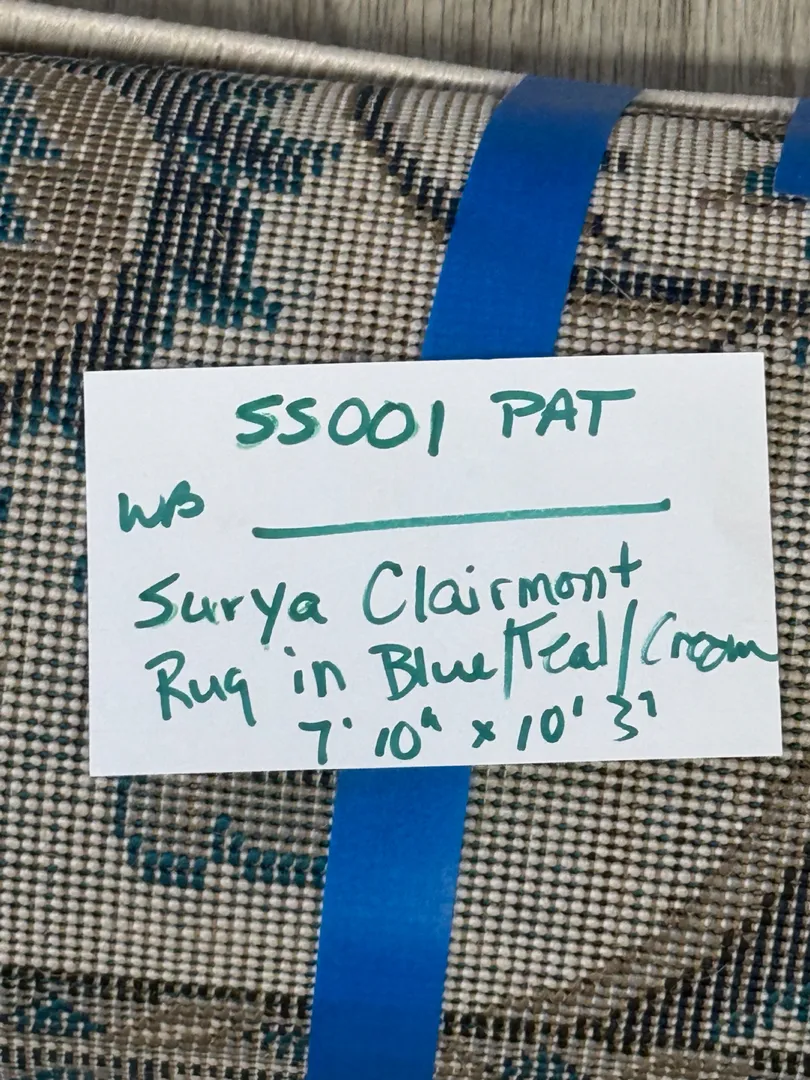 SS001 PAT
WB
Surya Clairmont
Rug in Blue/Teal/Cream
7' 10" x 10' 3"